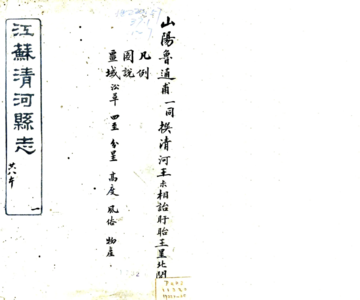 山陽魯通甫一同撰清河王未相詒盱眙王里北開
凡例
圖說
疆域 沿革 四至 分星 高度 風俗 物產
江蘇清河縣志
共八本
一